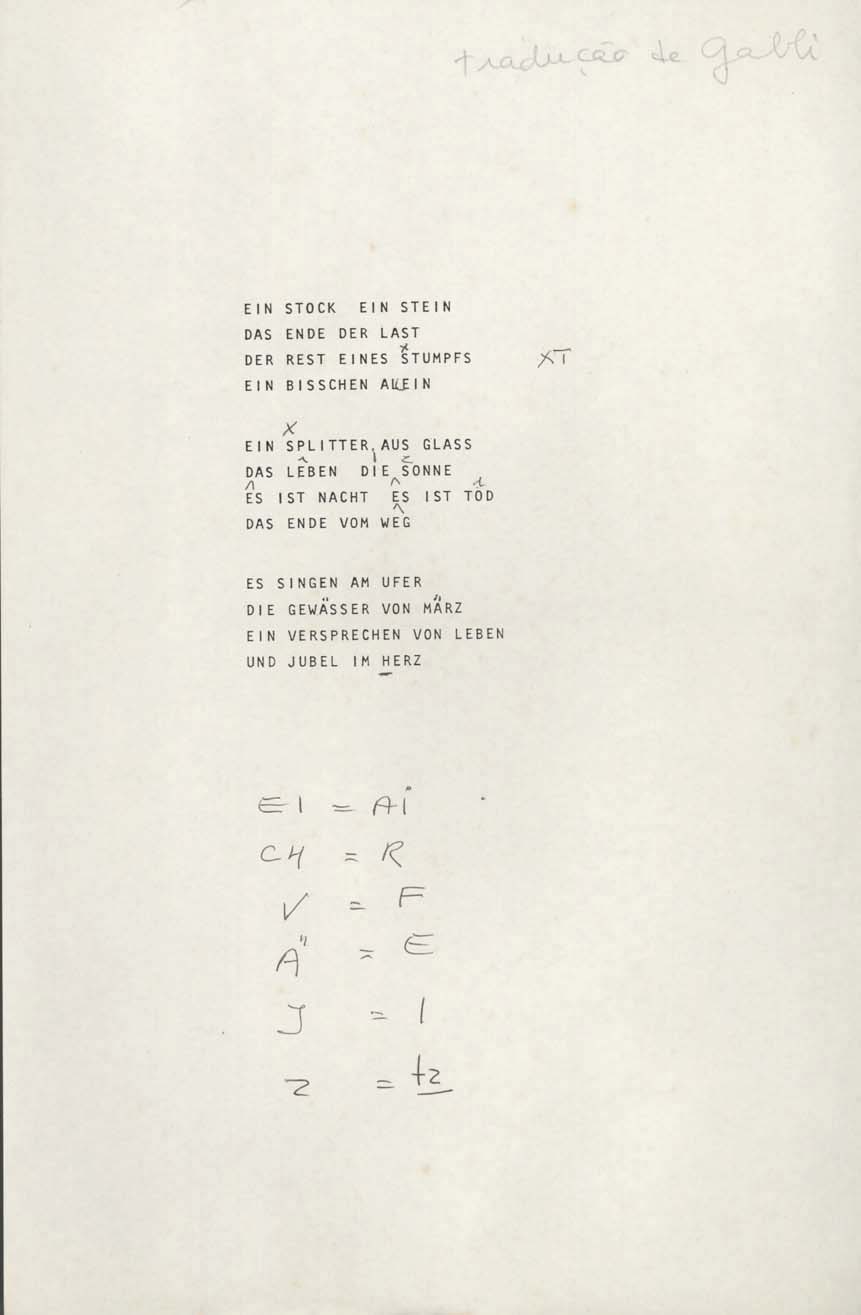 tradução de Gabli
EIN STOCK EIN STEIN
DAS ENDE DER LAST
x
DER REST EINES STUMPFS XT
EIN BISSCHEN ALLEIN
X
EIN SPLITTER, AUS GLASS
DAS LEBEN DIE SONNE
ES IST NACHT ES IST TOD
DAS ENDE VOM WEG
ES SINGEN AM UFER
DIE GEWÄSSER VON MÄRZ
EIN VERSPRECHEN VON LEBEN
UND JUBEL IM HERZ
EI = Ai
CH = R
V = F
Ä = E
J = I
Z = tz